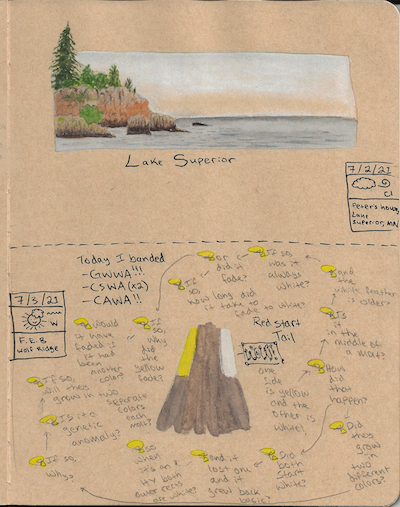 Lake Superior
7/2/21
Peter's house,
Lake
Superior, MN
Today I banded
-GWWA!!!
-CSWA(x2)
-CAWA!!
7/3/21
W
F.E.B
Wolf Ridge
Redstart
Tail
one
side
is yellow
and the
other is
white!
How
did
that
happen?
Did
they
grow
in
two
different
colors?
Did
both
start
white?
and it
lost one
and it
grow back
basic?
so
when
it's an
HY both
outer rects
are white?
If so,
why?
Is it a
genetic
anomaly?
If so,
will they
grow in two
separate
colors
each
molt?
would
it have
faded if
it had
been
another
color?
If
so,
why
did
the
yellow
fade?
If
so
how long did
it take to
fade to white?
or
did it
fade?
If so,
was it
always
white?
and
the
white feather
is older?
Is
it in
the middle
of a molt?